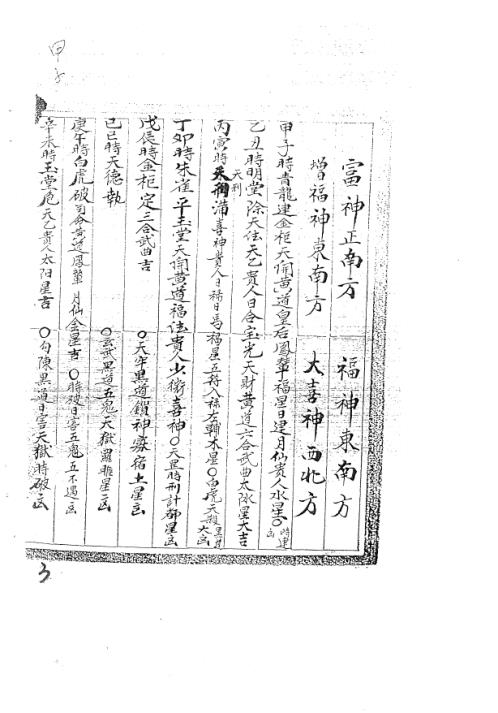 甲子
富神正南方 福神東南方
增福神東南方 大喜神西北方
甲子時青龍建金柜天開黄道皇后鳳輦福星日建月仙貴人水星〇時建凶
乙丑時明堂除天德天乙貴人日合宝光天財黄道六合武曲太陰星大吉
丙寅時天刑滿喜神貴人日禄日馬福星五符入禄左輔木星〇白虎天殺黑道大凶
天刑
丁卯時朱雀平玉堂天開黄道福德貴人少微喜神〇天罡時刑計都星凶
戊辰時金柜定三合武曲吉 〇天牢黑道鎖神寡宿土星凶
己巳時天德執 〇玄武黑道五鬼天獄羅睺星凶
庚午時白虎破司命黄道鳳輦月仙金星吉 〇時破日害五鬼五不遇凶
辛未時玉堂危天乙貴人太阳星吉 〇勾陳黑道日害天獄時破凶
3